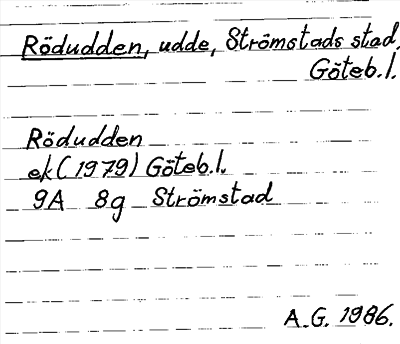 Rödudden, udde, Strömstads stad,
Göteb.l.
Rödudden
ek (1979) Göteb.l.
9A 8g Strömstad
A.G. 1986.